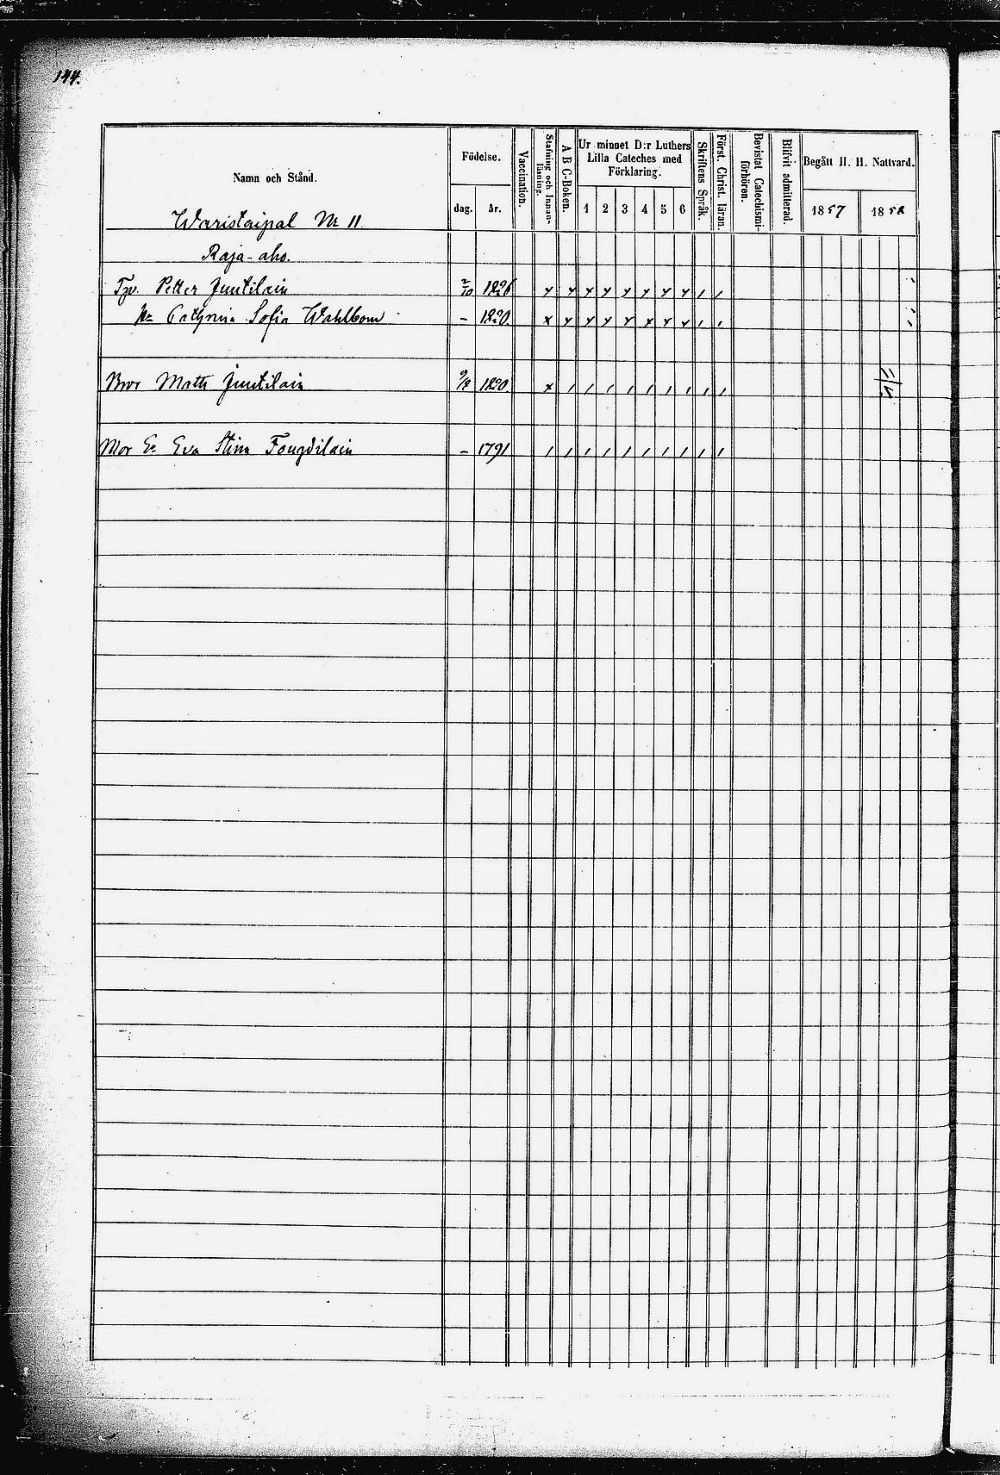 144.
Namn och Stånd.
Födelse.
dag. år.
Vaccination.
Stafning och Innan-
läsning.
A B C-Boken.
Ur minnet D:r Luthers
Lilla Cateches med
Förklaring.
1 2 3 4 5 6
Skriftens Språk.
Först. Christ. läran.
Bevistat Catechismi-
förhören.
Blifvit admitterad.
Begått H. H. Nattvard.
1857 1858
Waristaipal No 11
Raja-aho.
Petter Juutilain 2/10 1826
Sofia Wahlbom – 1820.
Bror Matts Juutilain 1820.
Mor Eva Stina Fougdilain – 1791